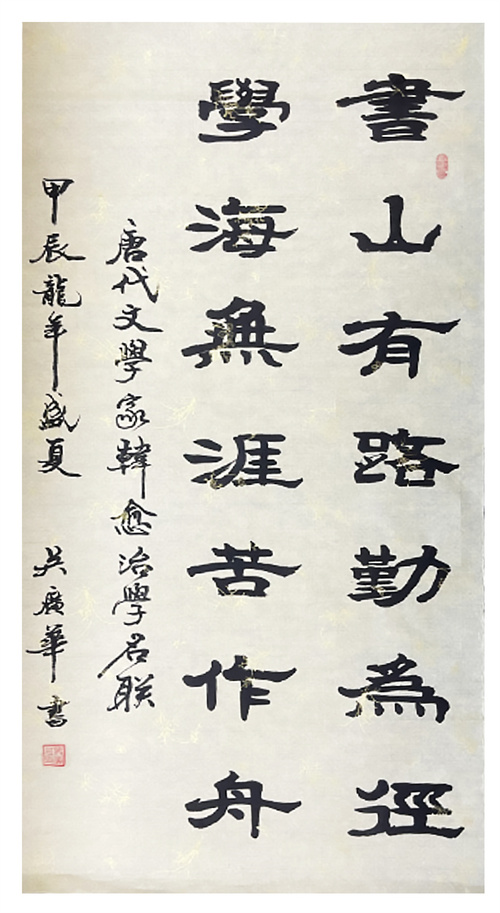 書山有路勤為徑
學海無涯苦作舟
唐代文學家韓愈治學名联
甲辰龍年盛夏 吴廣華書